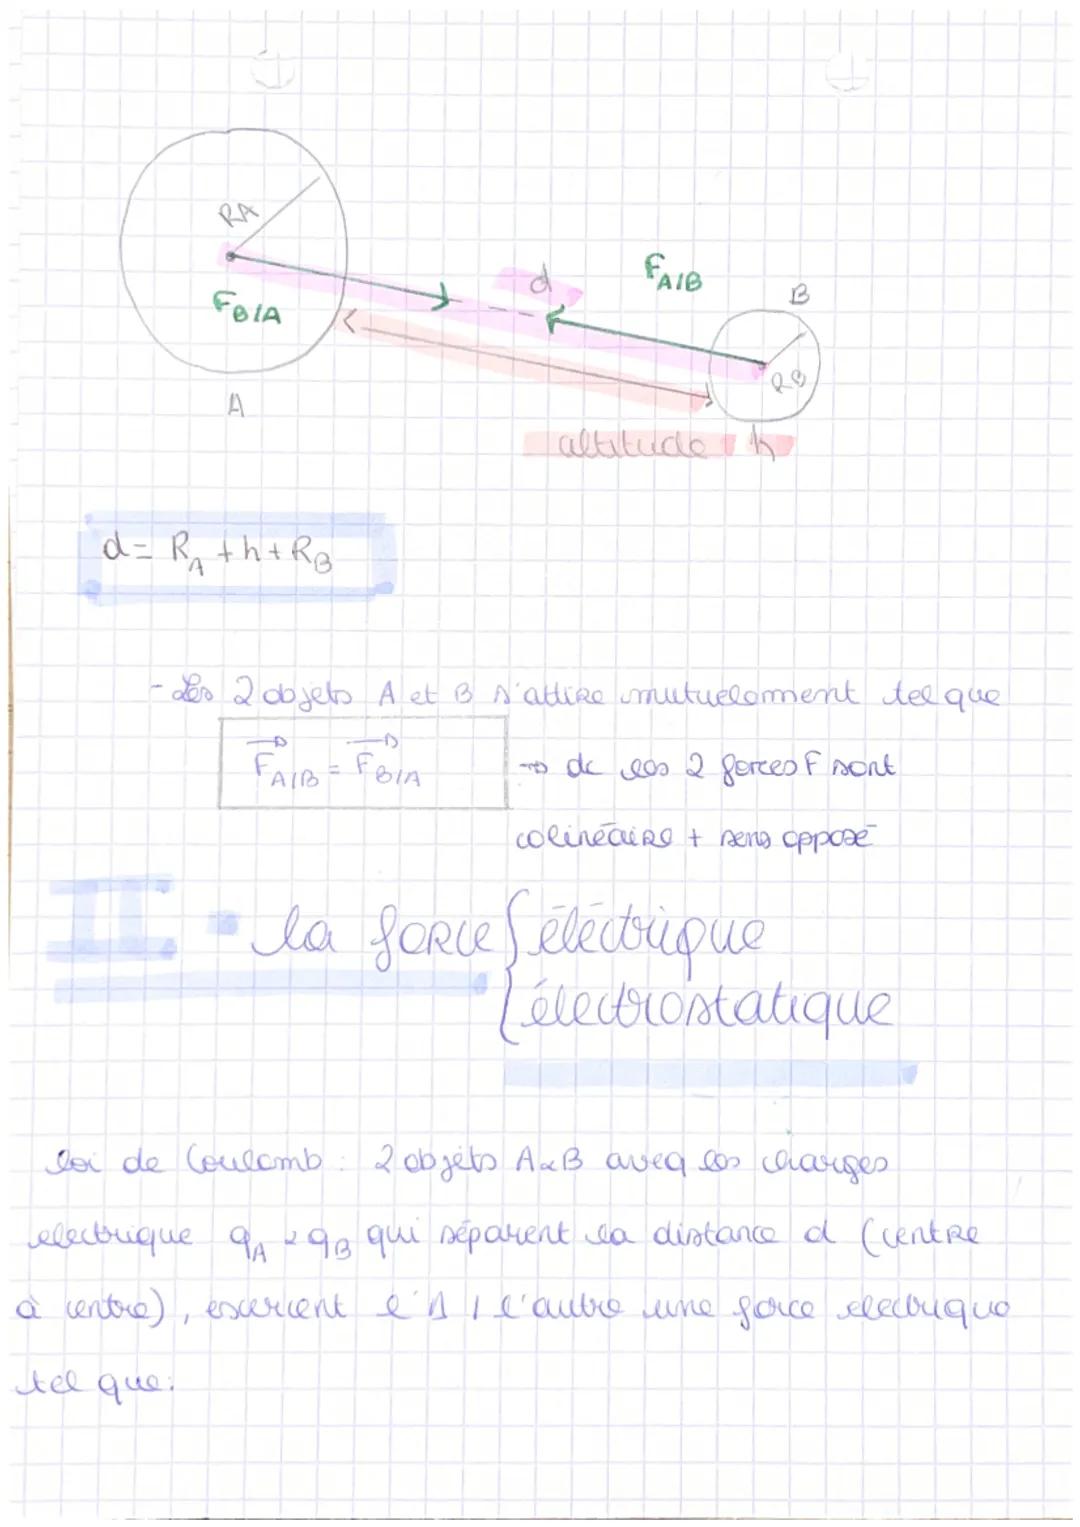 RA
d
F A/B
B
F B/A
RB
A
altitude h
d = R_A + h + R_B
- Les 2 objets A et B s'attire mutuelement tel que
F A/B = F B/A → dc les 2 forces F sont
colinéaire + sens opposé
II - la force { électrique
électrostatique
loi de Coulomb : 2 objets A & B aveq les charges
electrique q_A & q_B qui séparent la distance d (centre
à centre), exercent l'1 / l'autre une force electrique
tel que: